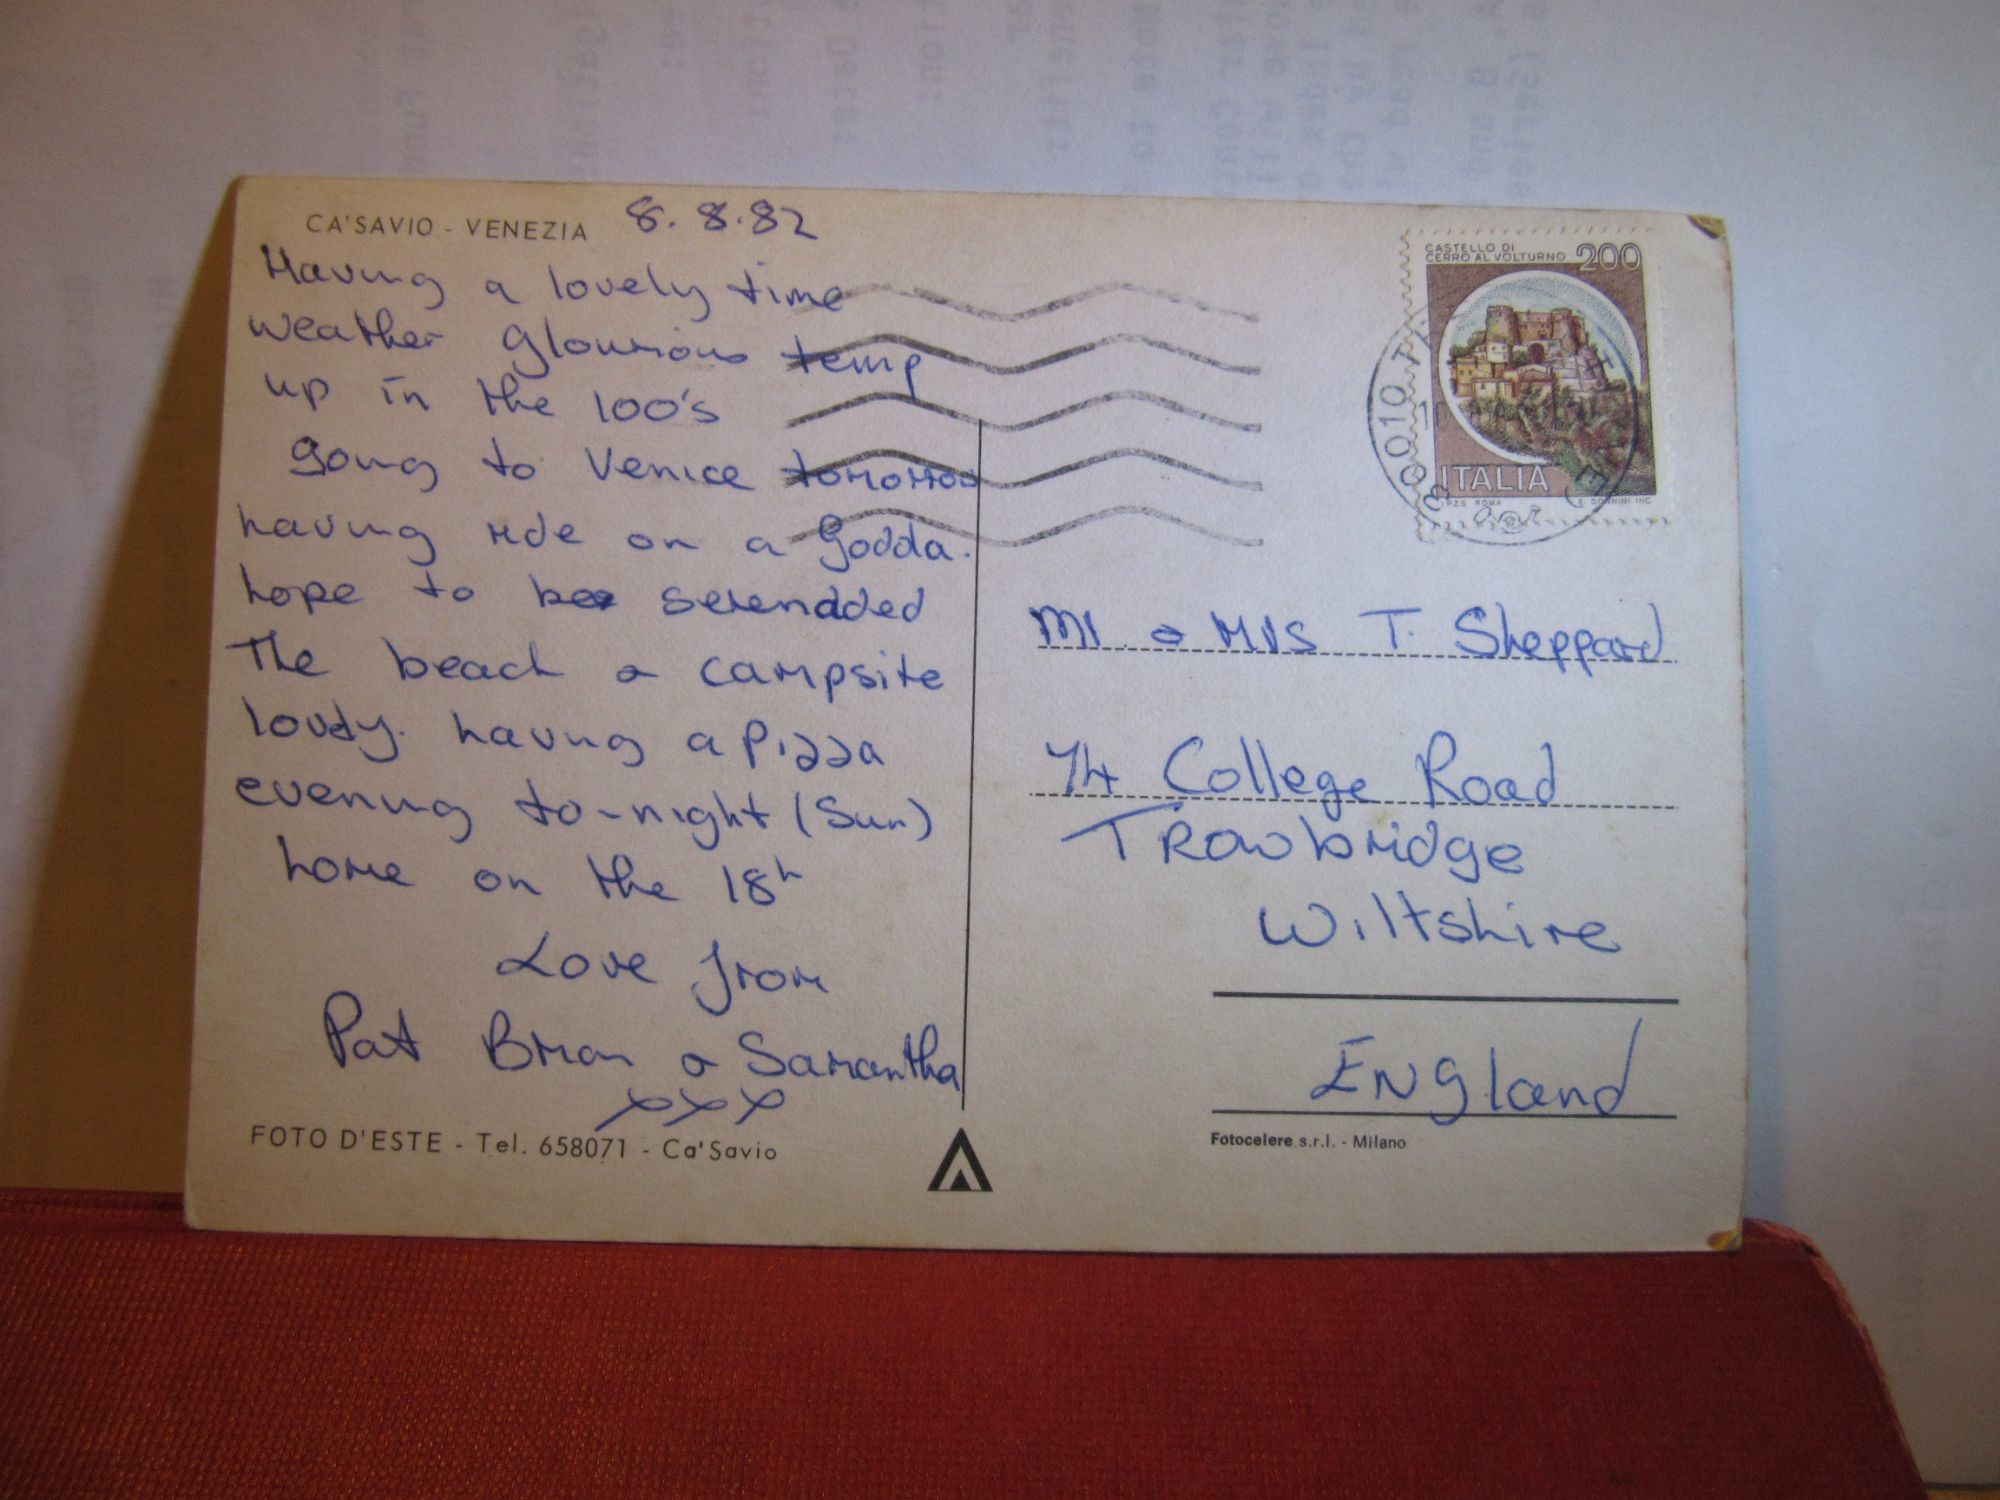 CA'SAVIO - VENEZIA 8.8.82
Having a lovely time
weather glourious temp
up in the 100's
going to Venice tomorrow
having ride on a Godda.
hope to be serendded
The beach & campsite
lovely. having a pizza
evening to-night (Sun)
home on the 18th
Love from
Pat Brian & Samantha
xxx
FOTO D'ESTE - Tel. 658071 - Ca'Savio
CASTELLO DI
CERRO AL VOLTURNO 200
ITALIA
I.P.Z.S. ROMA E. DONNINI INC.
30010
Mr & Mrs T. Sheppard
74 College Road
Trowbridge
Wiltshire
England
Fotocelere s.r.l. - Milano